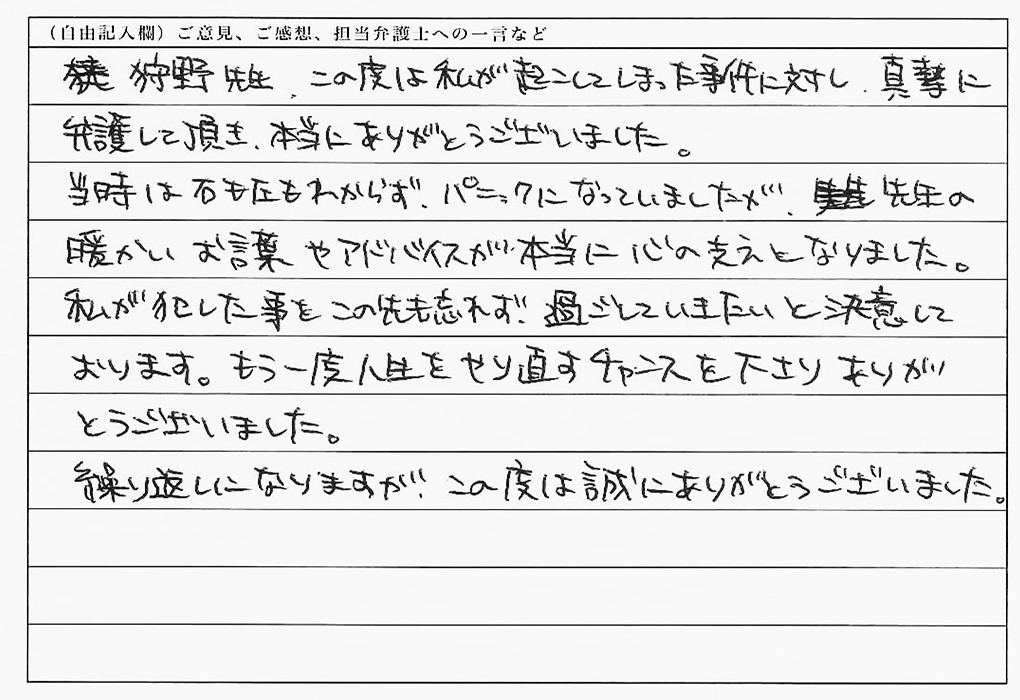 （自由記入欄）ご意見、ご感想、担当弁護士への一言など
狩野先生、この度は私が起こしてしまった事件に対し、真摯に
弁護して頂き、本当にありがとうございました。
当時は右も左もわからず、パニックになっていましたが、先生の
暖かいお言葉やアドバイスが本当に心の支えとなりました。
私が犯した事をこの先も忘れず、過ごしていきたいと決意して
おります。もう一度人生をやり直すチャンスを下さりありが
とうございました。
繰り返しになりますが、この度は誠にありがとうございました。